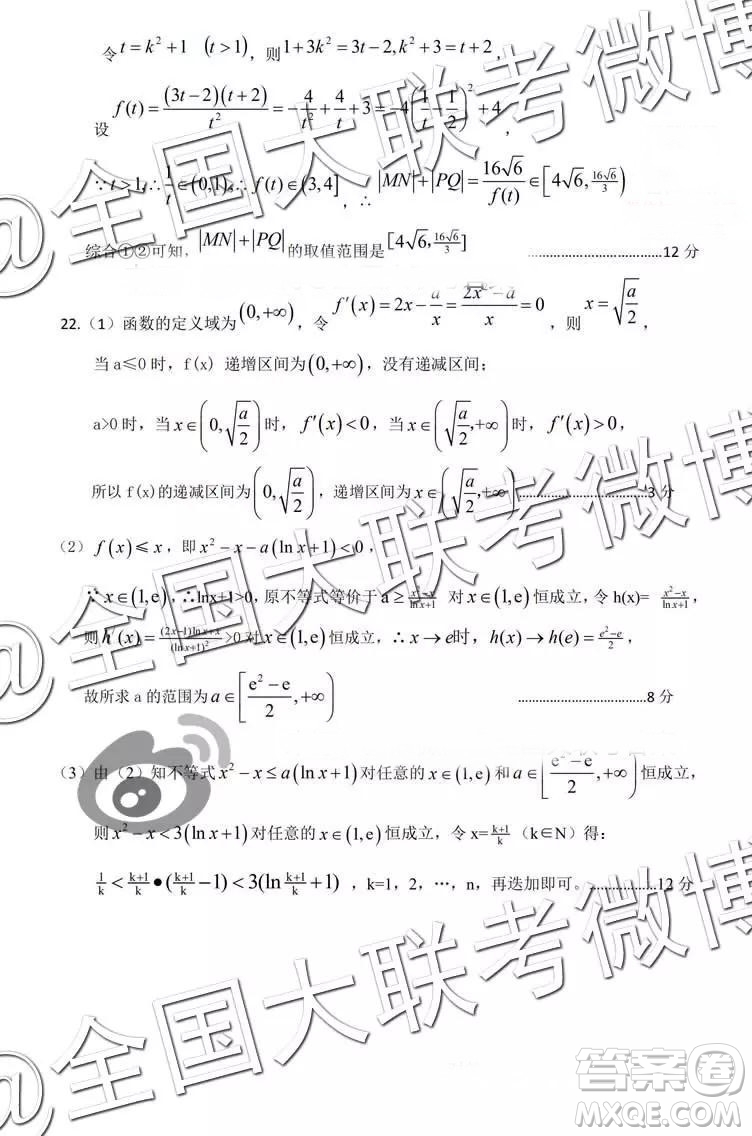 令 t=k²+1 (t>1), 则 1+3k²=3t-2, k²+3=t+2,
设 f(t)=\frac{(3t-2)(t+2)}{t²}=-\frac{4}{t²}+\frac{4}{t}+3=-4(\frac{1}{t}-\frac{1}{2})²+4,
∵t>1,∴\frac{1}{t}∈(0,1),∴f(t)∈(3,4], ∴|MN|+|PQ|=\frac{16√6}{f(t)}∈[4√6,\frac{16√6}{3})
综合①②可知, |MN|+|PQ| 的取值范围是 [4√6,\frac{16√6}{3}] ………………………………12 分
22.（1）函数的定义域为(0,+∞), 令 f′(x)=2x-\frac{a}{x}=\frac{2x²-a}{x}=0, 则 x=\sqrt{\frac{a}{2}},
当 a≤0 时, f(x) 递增区间为(0,+∞), 没有递减区间;
a>0 时, 当 x∈(0,\sqrt{\frac{a}{2}}) 时, f′(x)<0, 当 x∈(\sqrt{\frac{a}{2}},+∞) 时, f′(x)>0,
所以 f(x)的递减区间为(0,\sqrt{\frac{a}{2}}), 递增区间为 x∈(\sqrt{\frac{a}{2}},+∞) ………………………………3 分
（2） f(x)≤x, 即 x²-x-a(ln x+1)<0,
∵x∈(1,e),∴lnx+1>0, 原不等式等价于 a≥\frac{x²-x}{ln x+1} 对 x∈(1,e) 恒成立, 令 h(x)= \frac{x²-x}{ln x+1},
则 h′(x)=\frac{(2x-1)ln x+x}{(ln x+1)²}>0 对 x∈(1,e) 恒成立, ∴x→e时, h(x)→h(e)=\frac{e²-e}{2},
故所求 a 的范围为 a∈[\frac{e²-e}{2},+∞) ………………………………8 分
（3）由（2）知不等式 x²-x≤a(ln x+1) 对任意的 x∈(1,e) 和 a∈[\frac{e²-e}{2},+∞) 恒成立,
则 x²-x<3(ln x+1) 对任意的 x∈(1,e) 恒成立, 令 x=\frac{k+1}{k} (k∈N) 得:
\frac{1}{k}<\frac{k+1}{k}•(\frac{k+1}{k}-1)<3(ln\frac{k+1}{k}+1) , k=1, 2, …, n, 再迭加即可。………………12 分
@全国大联考微博
@全国大联考微博
@全国大联考微博
答案卷
MXQE.COM